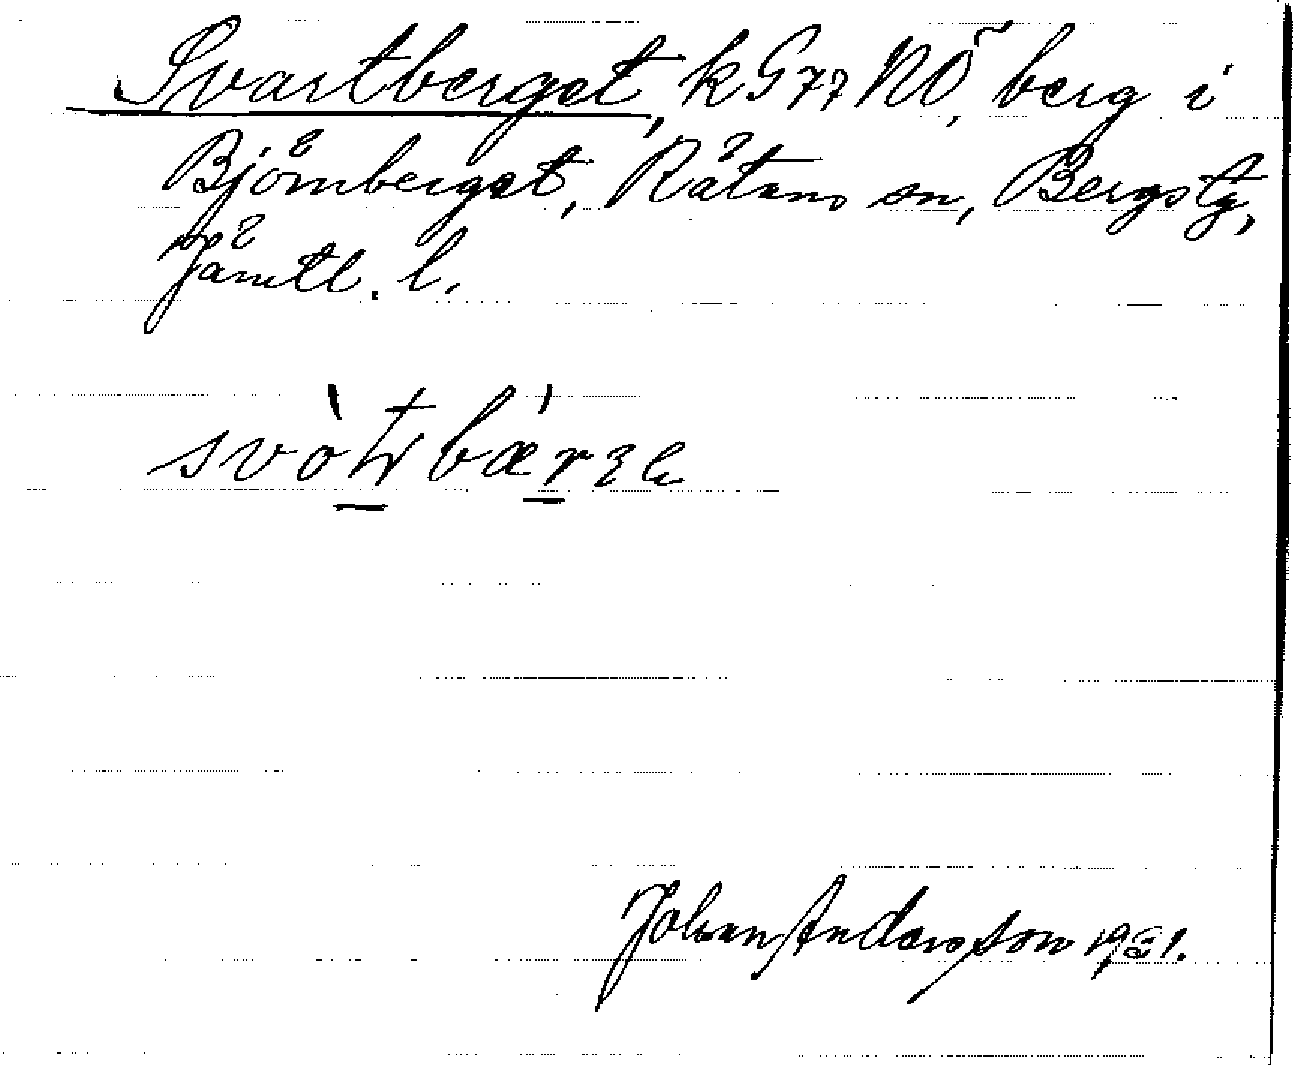 Svartberget, k G 77 NÖ, berg i
Björnberget, Rätans sn, Bergs tg,
Jämtl. l.
svòtbærʒe
Johan Andersson